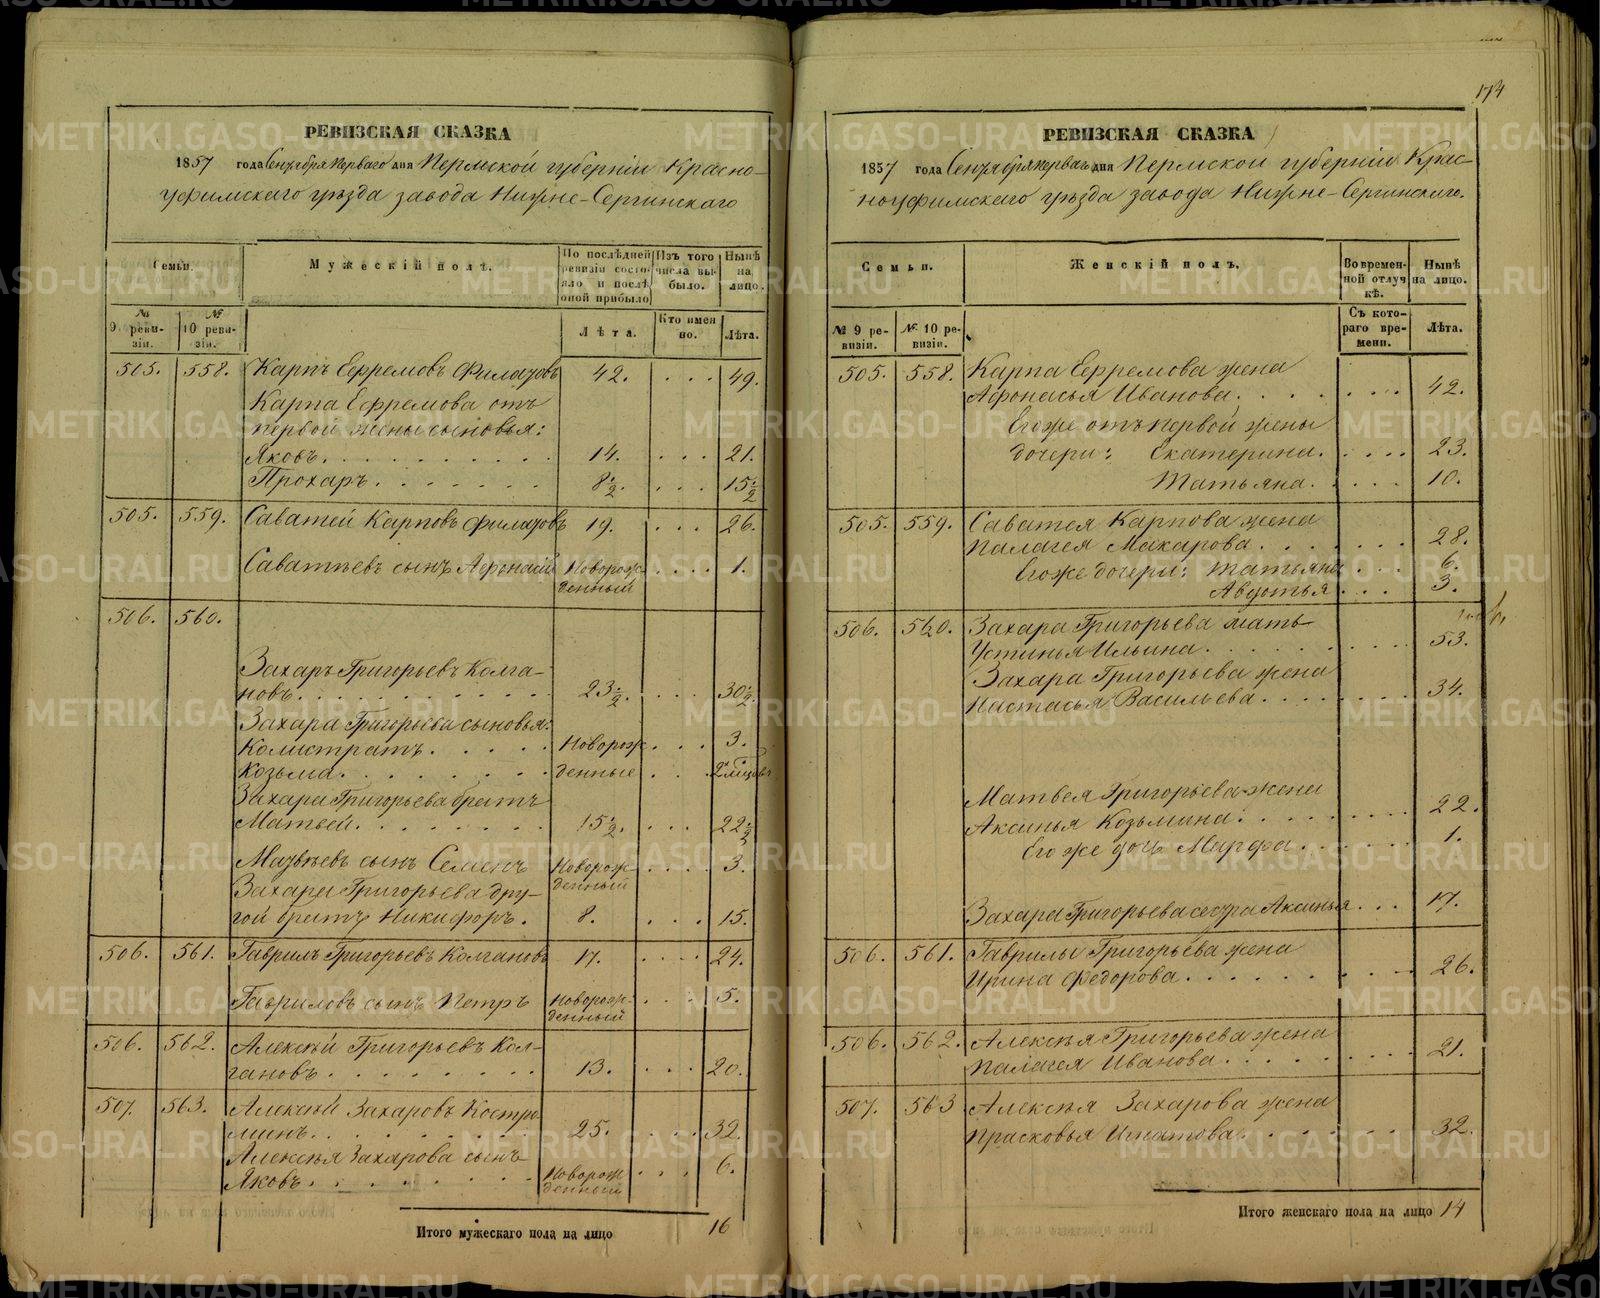 РЕВИЗСКАЯ СКАЗКА
1857 года Сентября перваго дня Пермской губерніи Красно-
уфимскаго уѣзда завода Нижне-Сергинскаго
Семьи.
Мужескій полъ.
По послѣдней ревизіи состояло и послѣ оной прибыло
Изъ того числа выбыло.
Нынѣ на лицо.
№ 9 ревизіи.
№ 10 ревизіи.
Лѣта.
Кто именно.
Лѣта.
505. 558. Карпъ Ефремовъ Филатовъ 42. . . . 49.
Карпа Ефремова отъ
первой жены сыновья:
Яковъ. 14. . . . 21.
Прохаръ. 8½. . . . 15½
505. 559. Саватей Карповъ Филатовъ 19. . . . 26.
Саватѣевъ сынъ Афонасій Новорожденный . . . 1.
506. 560.
Захаръ Григорьевъ Колга-
новъ. 23½. . . . 30½.
Захара Григорьева сыновья:
Колистратъ. Новорож . . . 3.
Козьма. денные . . .
Захара Григорьева братъ
Матвей. 15½. . . . 22½
Матвѣевъ сынъ Семенъ Новорожденный . . . 3.
Захара Григорьева дру-
гой братъ Никифоръ. 8. . . . 15.
506. 561. Гаврилъ Григорьевъ Колгановъ 17. . . . 24.
Гавриловъ сынъ Петръ Новорожденный . . . 5.
506. 562. Алексѣй Григорьевъ Кол-
гановъ. 13. . . . 20.
507. 563. Алексѣй Захаровъ Костро
минъ. 25. . . . 32.
Алексѣя Захарова сынъ
Яковъ. Новорожденный . . . 6.
Итого мужескаго пола на лицо 16
174
РЕВИЗСКАЯ СКАЗКА
1857 года Сентября перваго дня Пермской губерніи Крас-
ноуфимскаго уѣзда завода Нижне-Сергинскаго.
Семьи.
Женскій полъ.
Во временной отлучкѣ.
Нынѣ на лицо.
№ 9 ревизіи.
№ 10 ревизіи.
Съ котораго времени.
Лѣта.
505. 558. Карпа Ефремова жена
Афонасья Иванова. 42.
Егоже отъ первой жены
дочери: Екатерина. 23.
Татьяна. 10.
505. 559. Саватея Карпова жена
Палагея Макарова. 28.
Егоже дочери: Татьяна 6.
Авдотья 3.
506. 560. Захара Григорьева мать
Устинья Ильина. 53.
Захара Григорьева жена
Настасья Васильева. 34.
Матвея Григорьева жена
Аксинья Козьмина. 22.
Его же дочь Марфа. 1.
Захара Григорьева сестра Аксинья 17.
506. 561. Гаврилы Григорьева жена
Ирина Федорова. 26.
506. 562. Алексѣя Григорьева жена
Палагея Иванова. 21.
507. 563 Алексѣя Захарова жена
Прасковья Игнатова. 32.
Итого женскаго пола на лицо 14
METRIKI.GASO-URAL.RU